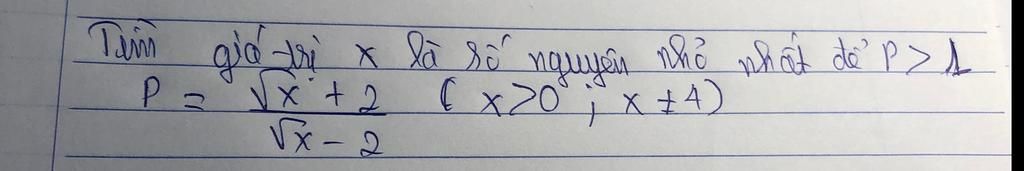 Tìm giá trị x là số nguyên nhỏ nhất để P > 1
P = \frac{\sqrt{x} + 2}{\sqrt{x} - 2} ( x > 0 ; x ≠ 4 )